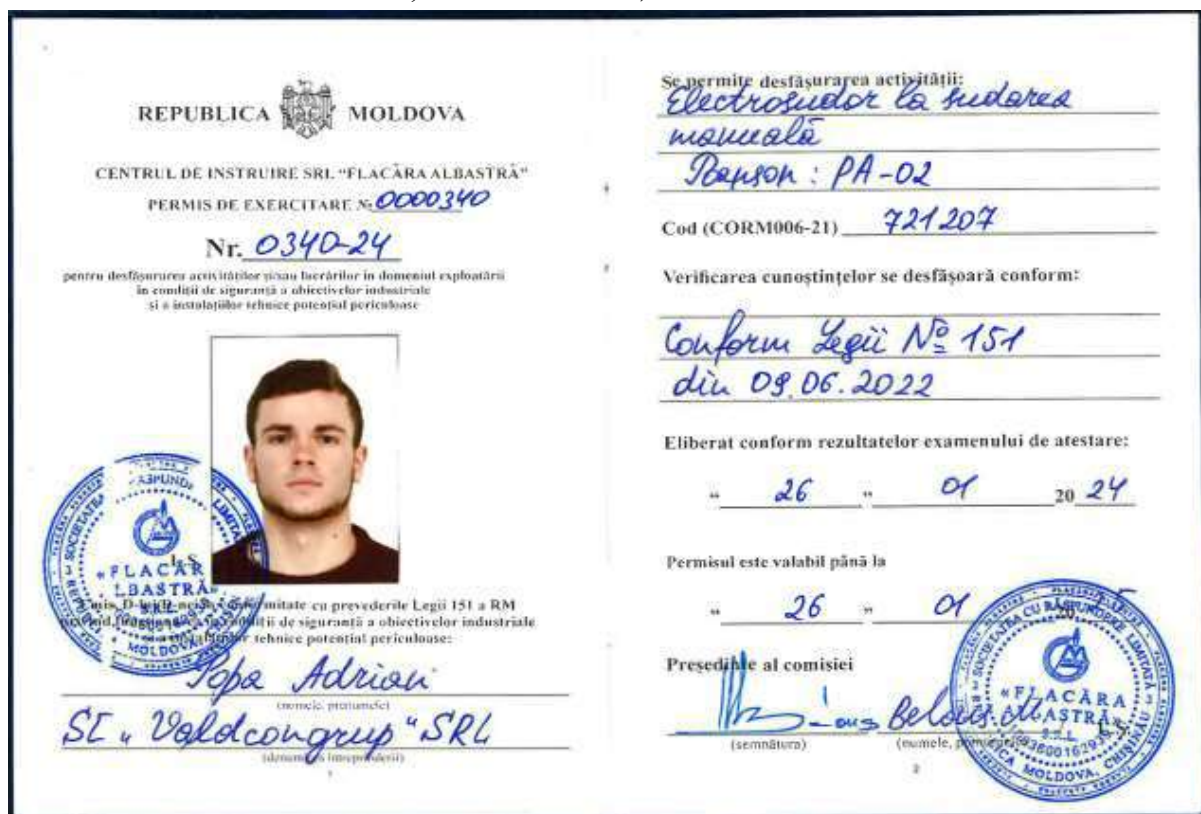 REPUBLICA MOLDOVA
CENTRUL DE INSTRUIRE SRL "FLACĂRA ALBASTRĂ"
PERMIS DE EXERCITARE № 0000340
Nr. 0340-24
pentru desfășurarea activităților și/sau lucrărilor în domeniul exploatării
în condiții de siguranță a obiectivelor industriale
și a instalațiilor tehnice potențial periculoase
L.S.
«FLACĂRA
ALBASTRĂ»
S.R.L.
MOLDOVA
conformitate cu prevederile Legii 151 a RM
condiții de siguranță a obiectivelor industriale
tehnice potențial periculoase:
Popa Adrian
(numele, prenumele)
SC "Valdcongrup" SRL
(denumirea întreprinderii)
1
Se permite desfășurarea activității:
Electrosudor la sudarea
manuală
Poanson: PA-02
Cod (CORM006-21) 721207
Verificarea cunoștințelor se desfășoară conform:
Conform Legii № 151
din 09.06.2022
Eliberat conform rezultatelor examenului de atestare:
"26" 01 2024
Permisul este valabil până la
"26" 01 20
Președinte al comisiei
Belous M.
(semnătura) (numele,
SOCIETATEA CU RĂSPUNDERE LIMITATĂ
«FLACĂRA
ALBASTRĂ»
S.R.L.
MOLDOVA, CHIȘINĂU
2